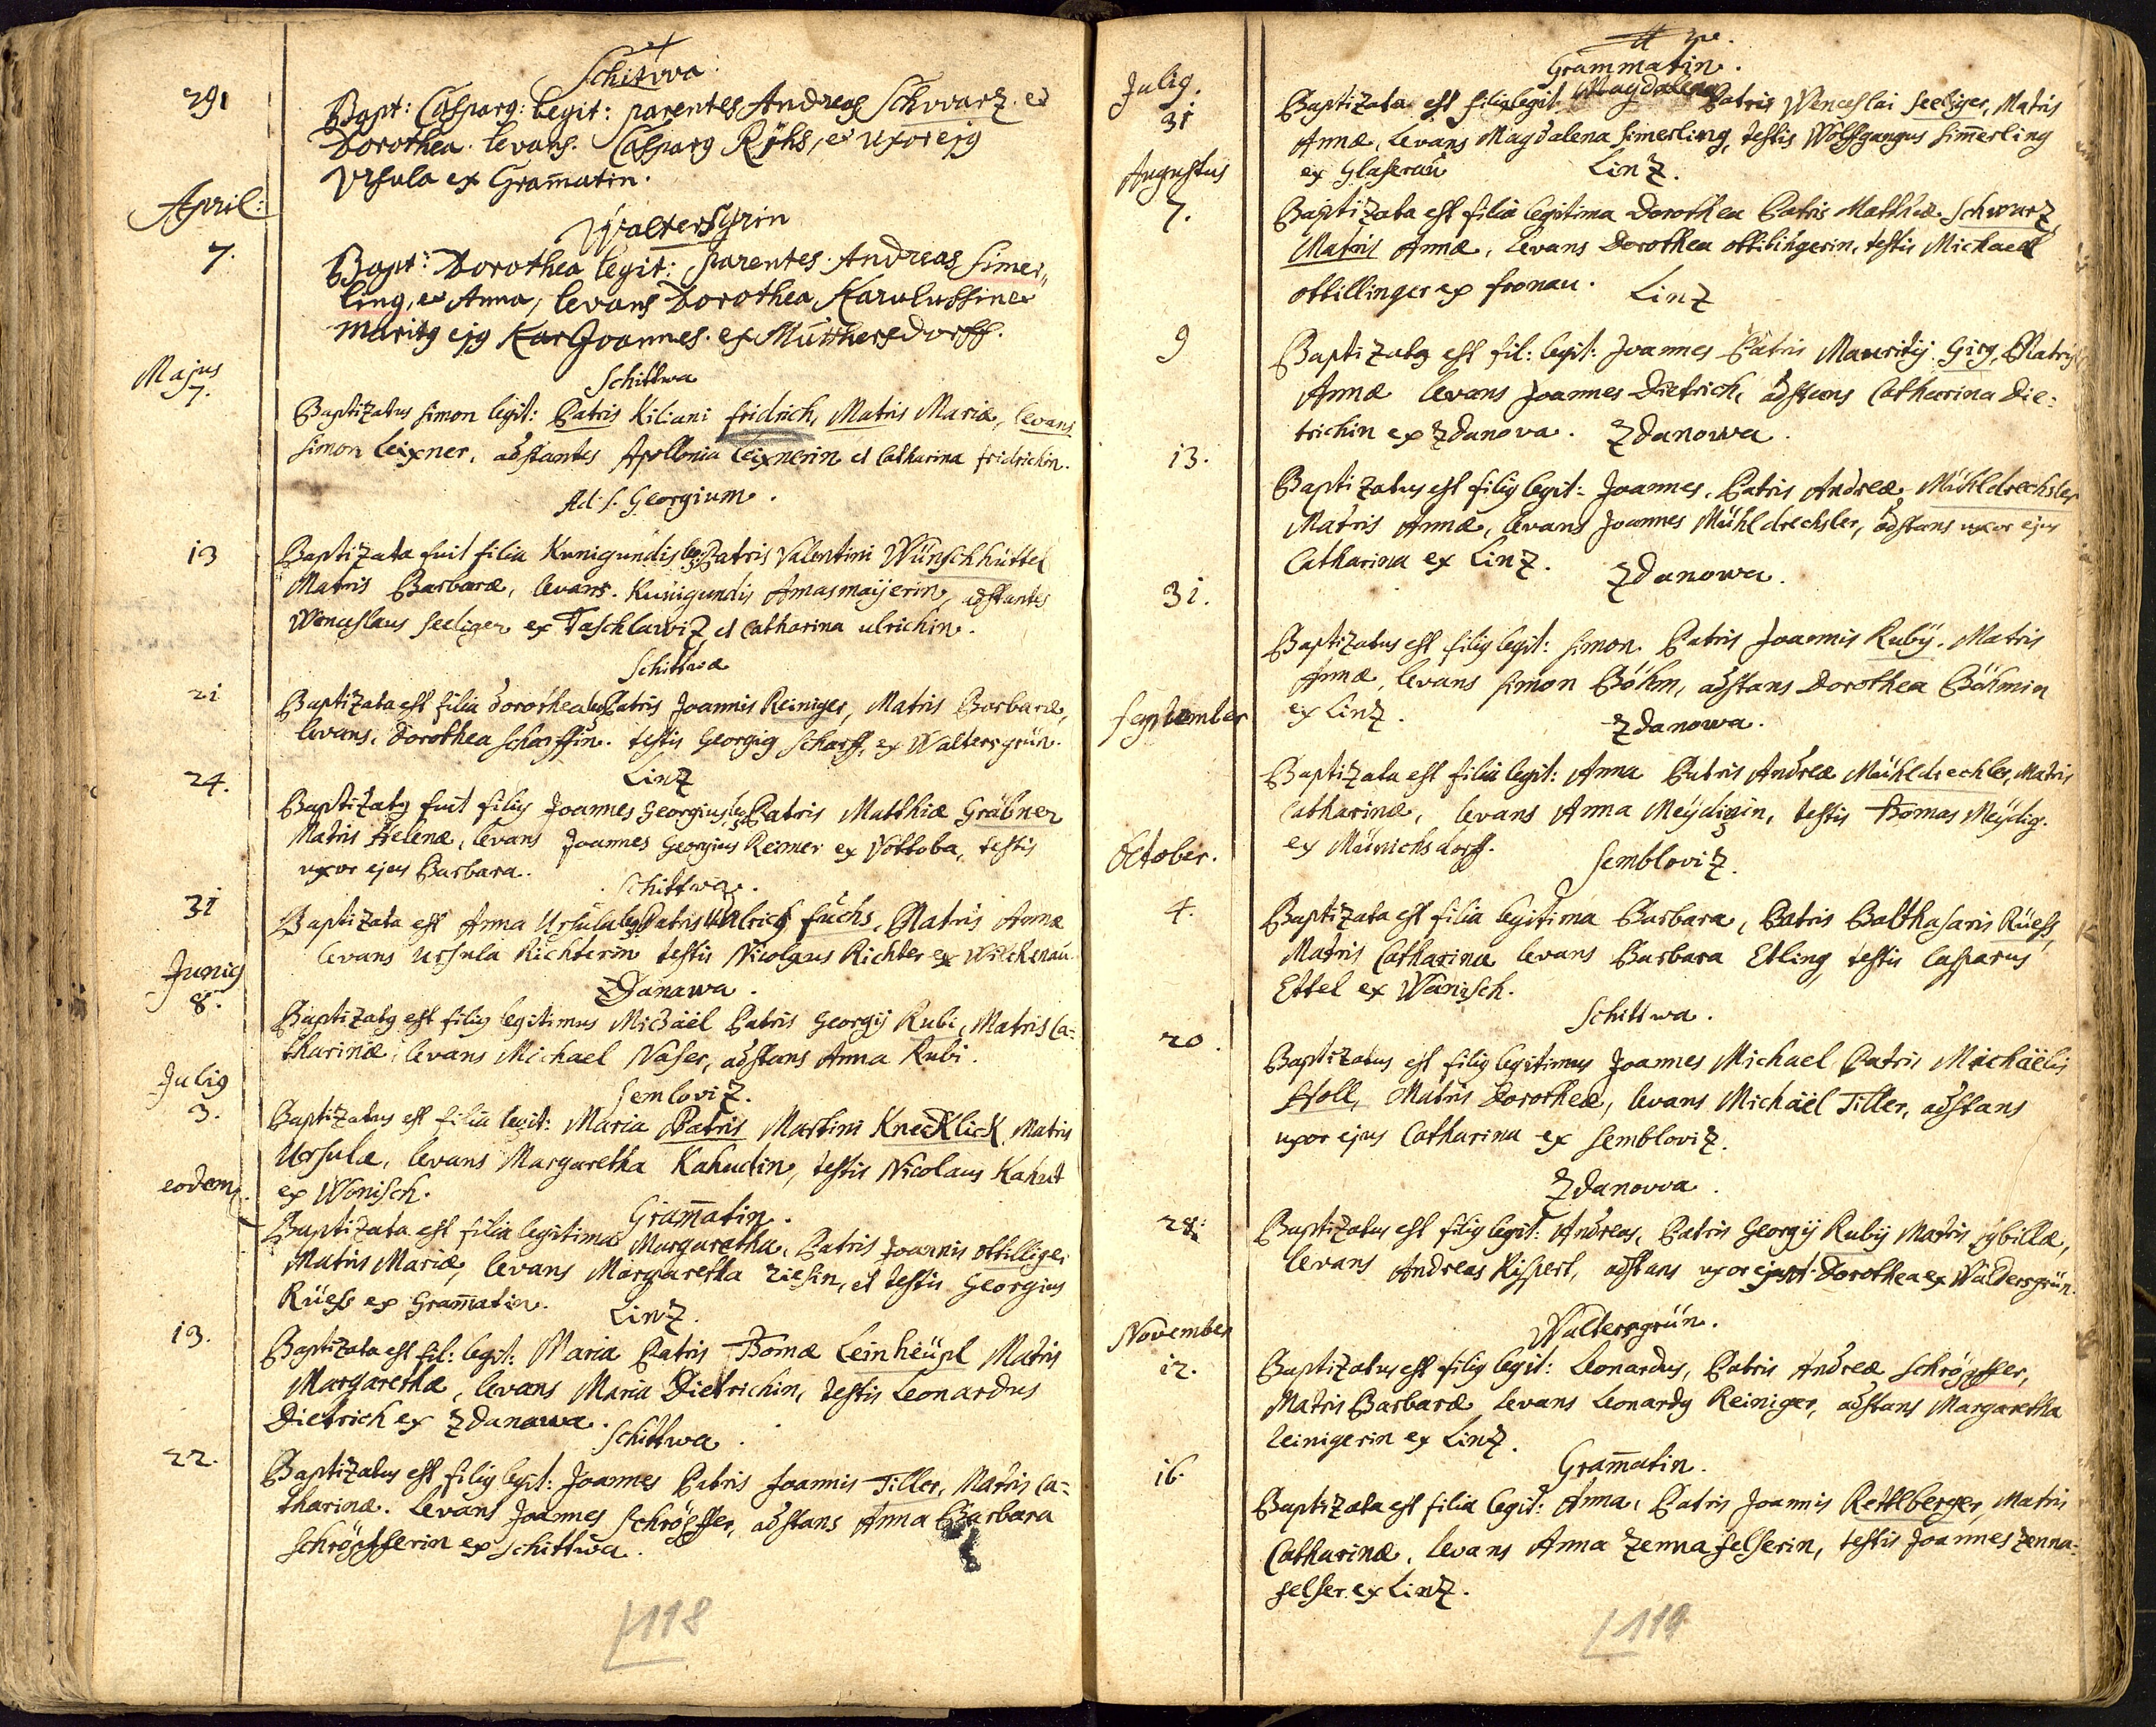 Schittwa
291
Bapt: Casparg: legit: parentes Andreas Schwarz et
Dorothea. levans. Casparg Röhs, et uxor ejg
Ursula ex Gram̄atin.
April:
Waltersgrin
7.
Bapt: Dorothea legit: parentes Andreas Simer,,
ling, et Anna, levans Dorothea
maritg ejg Joannes. ex Mutthersdorff.
Majus
7.
Schittwa
Baptizatus Simon legit: Patris Kiliani fridrich, Matris Mariæ, levans
Simon Leixner, adstantes Apollonia Leixnerin et Catharina fridrichin.
Ad S. Georgium.
13
Baptizata fuit filia Kunigundis leg: Patris Valentini Wünschhüttel
Matris Barbaræ, levans. Kunigundis Amasmaijerin, adstantes
Wenceslaus Seeliger ex Taschlawiz et Catharina ulrichin.
Schittwa
21
Baptizata est filia dorothea leg Patris Joannis Reiniger, Matris Barbaræ,
levans. Dorothea Scharffin. testis Georgig Scharff, ex Waltersgrün.
Linz
24.
Baptizatg fuit filig Joannes Georgius leg Patris Matthiæ Gräbner
Matris Helenæ, levans Joannes Georgius Reimer ex Vottoba, testis
uxor ejus Barbara.
Schittwa.
31
Baptizata est Anna Ursula leg Patris Ulrich fuchs, Matris Annæ
levans Ursula Richterin testis Nicolaus Richter ex Wilckenau
Junig
8.
Zdanawa.
Baptizatg est filig legitimus Michaël Patris Georgij Rubi, Matris Ca=
tharinæ, levans Michael Naser, adstans Anna Rubi.
Julig
3.
Semloviz.
Baptizatus est filia legit: Maria Patris Martini Knecklick Matris
Ursulæ, levans Margaretha Kahudin, testis Nicolaus Kahut
ex Wonisch.
eodem.
Gram̄atin.
Baptizata est filia legitima Margaretha, Patris Joannis ottilliger
Matris Mariæ, levans Margaretha Riesin, et testis Georgius
Rüess ex Gram̄atin.
Linz.
13.
Baptizata est fil: legit: Maria Patris Thomæ Leinheüpl Matris
Margarethæ, levans Maria Dietrichin, testis Leonardus
Dietrich ex Zdanawa.
Schittwa.
22.
Baptizatus est filig legit: Joannes Patris Joannis Tiller, Matris Ca=
tharinæ. levans Joannes Schröpffer, adstans Anna Barbara
Schröpfferin ex Schittwa.
118
Grammatin.
Julig.
31
Baptizata est filia legit Magdalena Patris Wenceslai Seeliger, Matris
Annæ, levans Magdalena Simerling, testis Wolffgangus Sim̄erling
ex Glaserau
Linz.
Augustus
7.
Baptizata est filia legitima Dorothea Patris Matthiæ Schwarz,
Matris Annæ, levans Dorothea ottilingerin, testis Michael
ottillinger ex fronau.
Linz
9
Baptizatg est fil: legit: Joannes Patris Mauritij Girg, Matris
Annæ levans Joannes Dietrich, adstans Catharina Die=
trichin ex Zdanova.
Zdanowa.
13.
Baptizatus est filig legit: Joannes. Patris Andreæ Mühldrechsler
Matris Annæ, levans Joannes Mühldrechsler, adstans uxor ejus
Catharina ex Linz.
Zdanowa.
31.
Baptizatus est filig legit: Simon Patris Joannis Rubij. Matris
Annæ, levans Simon Böhm, adstans Dorothea Böhmin
ex Linz.
Zdanowa.
September
Baptizata est filia legit: Anna Patris Andreæ Mühldrechler, Matris
Catharinæ, levans Anna Meydigin, testis Thomas Meydig.
ex Münichsdorff.
October.
Sembloviz.
4.
Baptizata est filia legitima Barbara, Patris Balthasaris Rüess,
Matris Catharina levans Barbara Etling, testis Casparus
Ettel ex Wonisch.
Schittwa.
20.
Baptizatus est filig legitimus Joannes Michael Patris Michaëlis
Stoll, Matris Dorotheæ, levans Michaël Tiller, adstans
uxor ejus Catharina ex Sembloviz.
Zdanowa.
28.
Baptizatus est filig legit: Andreas, Patris Georgij Rubij Matris Sybillæ,
levans Andreas Rispert, adstans uxor ejus Dorothea ex Waldersgrün.
Waltersgrün.
November
12.
Baptizatus est filig legit: Leonardus, Patris Andreæ Schröpffer,
Matris Barbaræ levans Leonardg Reiniger, adstans Margaretha
Reinigerin ex Linz.
Gram̄atin.
16.
Baptizata est filia legit: Anna, Patris Joannis Rettlberger, Matris
Catharinæ, levans Anna Zennafelserin, testis Joannes Zenna=
felser ex Linz.
119